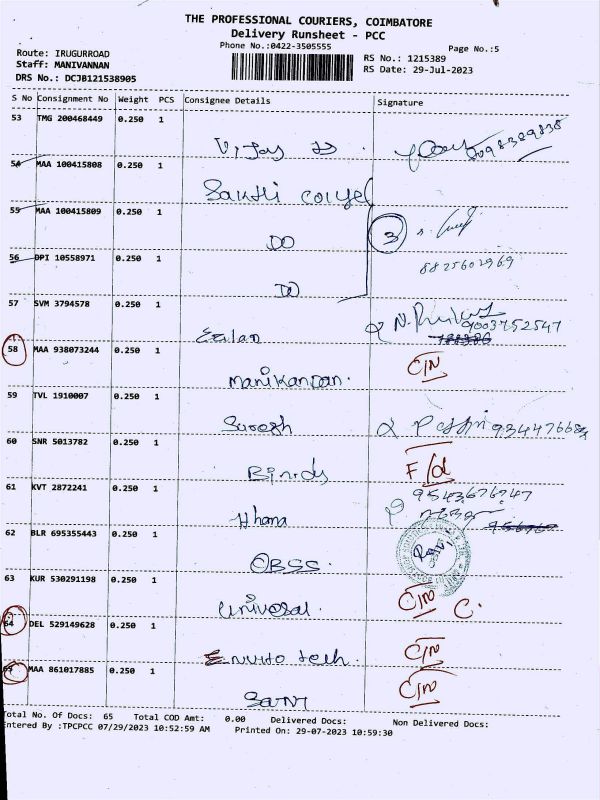 THE PROFESSIONAL COURIERS, COIMBATORE
Delivery Runsheet - PCC
Phone No.:0422-3505555
Page No.:5
Route: IRUGURROAD
Staff: MANIVANNAN
DRS No.: DCJB121538905
RS No.: 1215389
RS Date: 29-Jul-2023
S No Consignment No Weight PCS Consignee Details Signature
53 TMG 200468449 0.250 1
Vijay
54 MAA 100415808 0.250 1
Sakthi
55 MAA 100415809 0.250 1
DO 3
56 DPI 10558971 0.250 1
8825602969
DO
57 SVM 3794578 0.250 1
9003752547
58 MAA 938073244 0.250 1 C/N
Manikandan.
59 TVL 1910007 0.250 1
Suresh
60 SNR 5013782 0.250 1 F/d
Bindy
61 KVT 2872241 0.250 1
Hhana
62 BLR 695355443 0.250 1
OBSS.
63 KUR 530291198 0.250 1 C/N C.
Universal.
64 DEL 529149628 0.250 1 C/N
tech.
65 MAA 861017885 0.250 1 C/N
Total No. Of Docs: 65 Total COD Amt: 0.00 Delivered Docs: Non Delivered Docs:
Entered By :TPCPCC 07/29/2023 10:52:59 AM Printed On: 29-07-2023 10:59:30